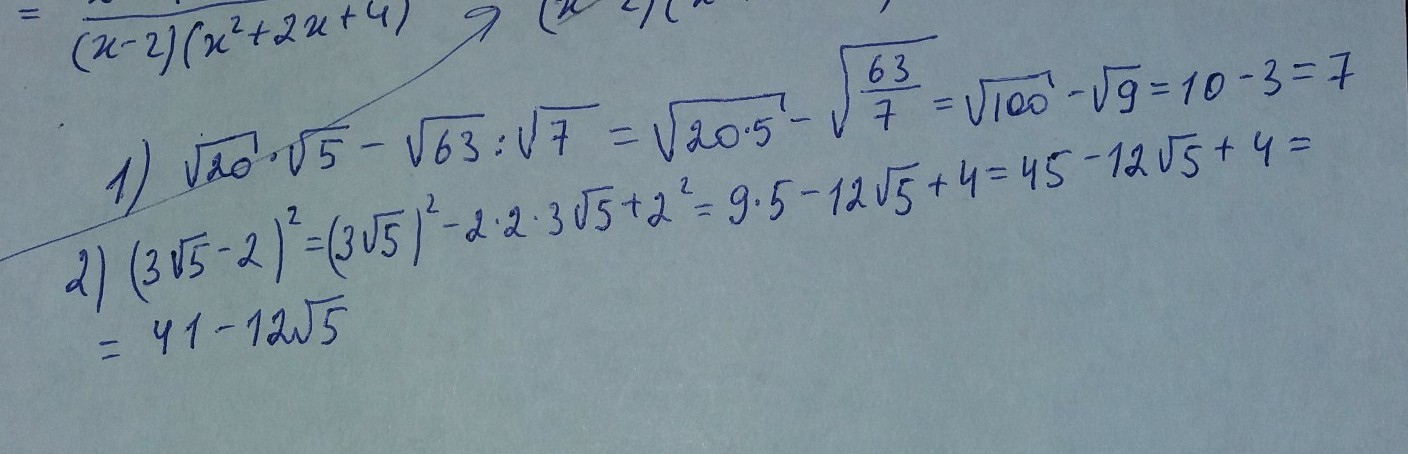 = (x-2)(x²+2x+4)
1) √20·√5 - √63:√7 = √20·5 - √63/7 = √100 - √9 = 10 - 3 = 7
2) (3√5 - 2)² = (3√5)² - 2·2·3√5 + 2² = 9·5 - 12√5 + 4 = 45 - 12√5 + 4 =
= 41 - 12√5